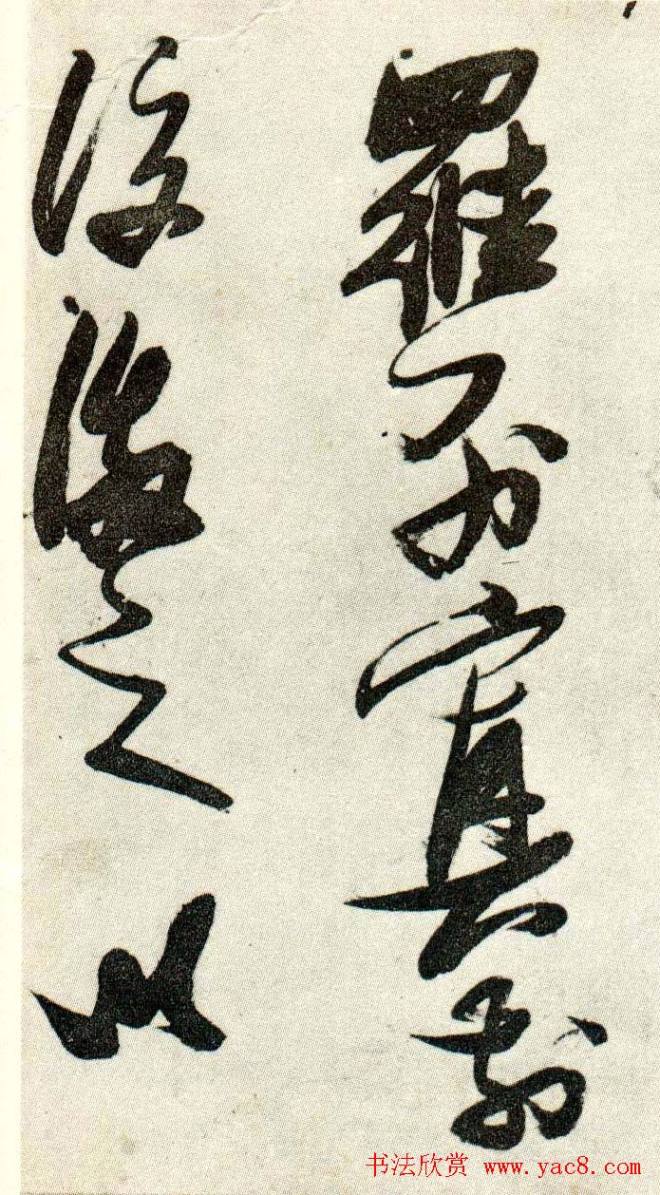 羅列寘前
後誨之以
书法欣赏 www.yac8.com